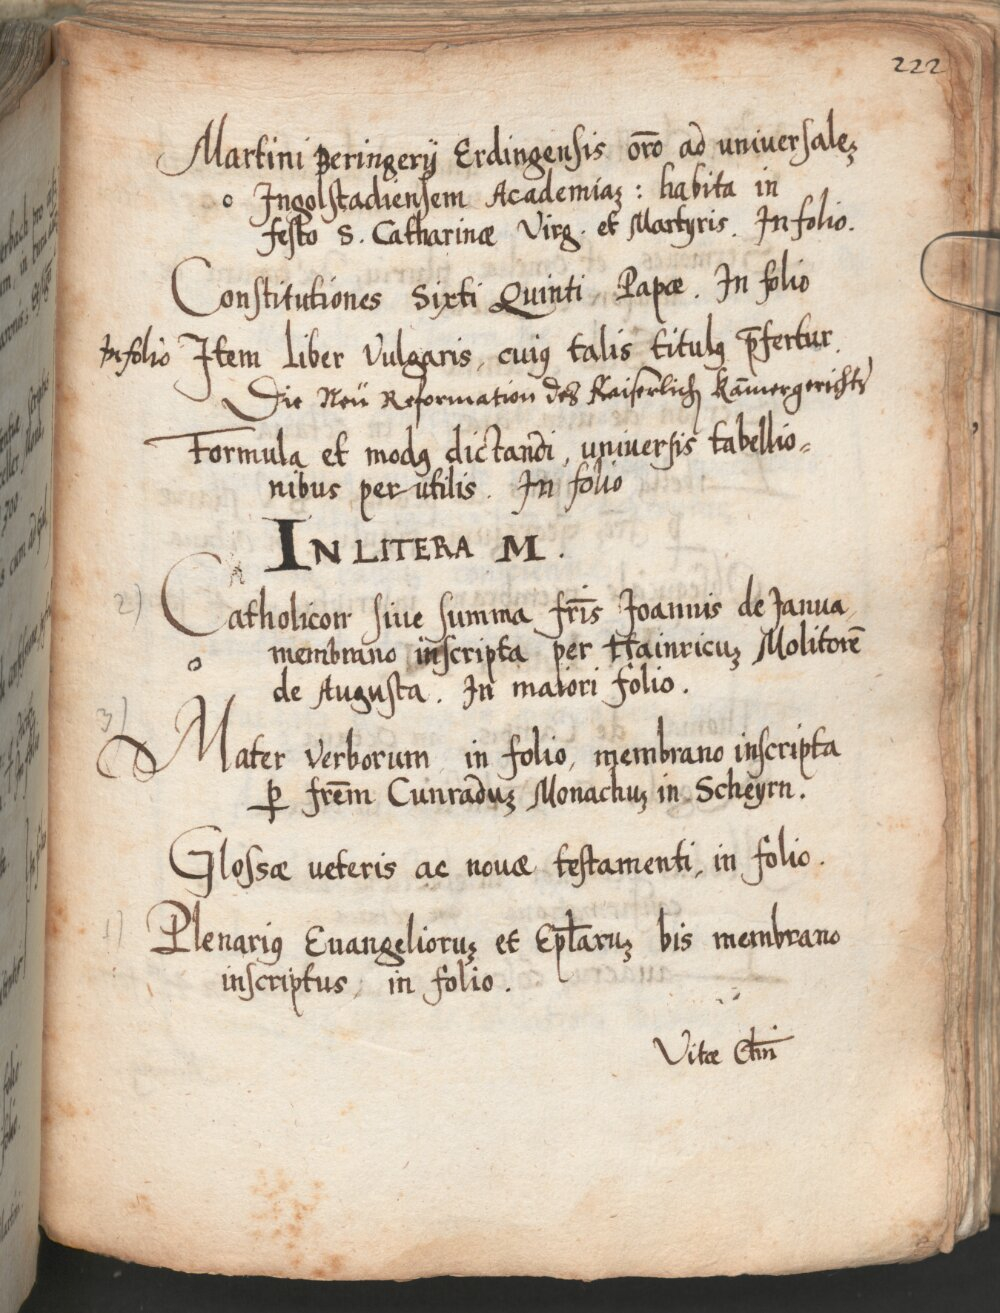 222
Martini Peringerij Erdingensis orō ad uniuersaleʒ
o Ingolstadiensem Academiaʒ : habita in
festo S. Catharinæ Virg. et Martyris. In folio.
Constitutiones Sixti Quinti Papæ. In folio
In folio Item liber vulgaris, cuiꝰ talis titulꝰ p̄fertur.
Die Neü Reformation des Kaiserlich Kam̄ergerichts
Formula et modꝰ dictandi, uniuersis tabellio=
nibus per utilis. In folio
IN LITERA M.
2) Catholicon siue summa fr̄is Joannis de Janua
o membrano inscripta per Hainricuʒ Molitorē
de Augusta. In maiori folio.
3) Mater verborum in folio, membrano inscripta
ꝑ frēm Cunraduʒ Monachuʒ in Scheyrn.
Glossæ ueteris ac nouæ testamenti, in folio.
1) Plenariꝰ Euangelioruʒ et Ep̄laruʒ bis membrano
inscriptus, in folio.
Vitæ